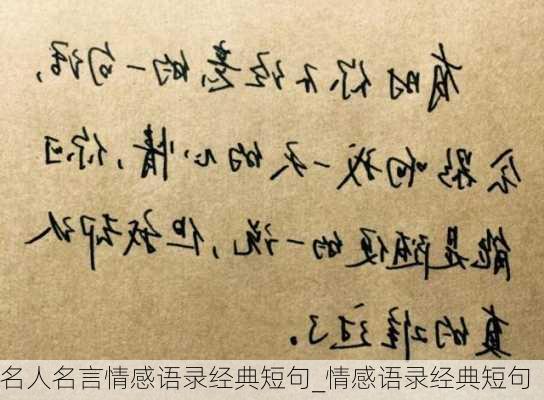 有时你不经意的一句话，
会影响我一天的心情，你可
能是随便的一说，但我却认
真的难过了。
名人名言情感语录经典短句_情感语录经典短句